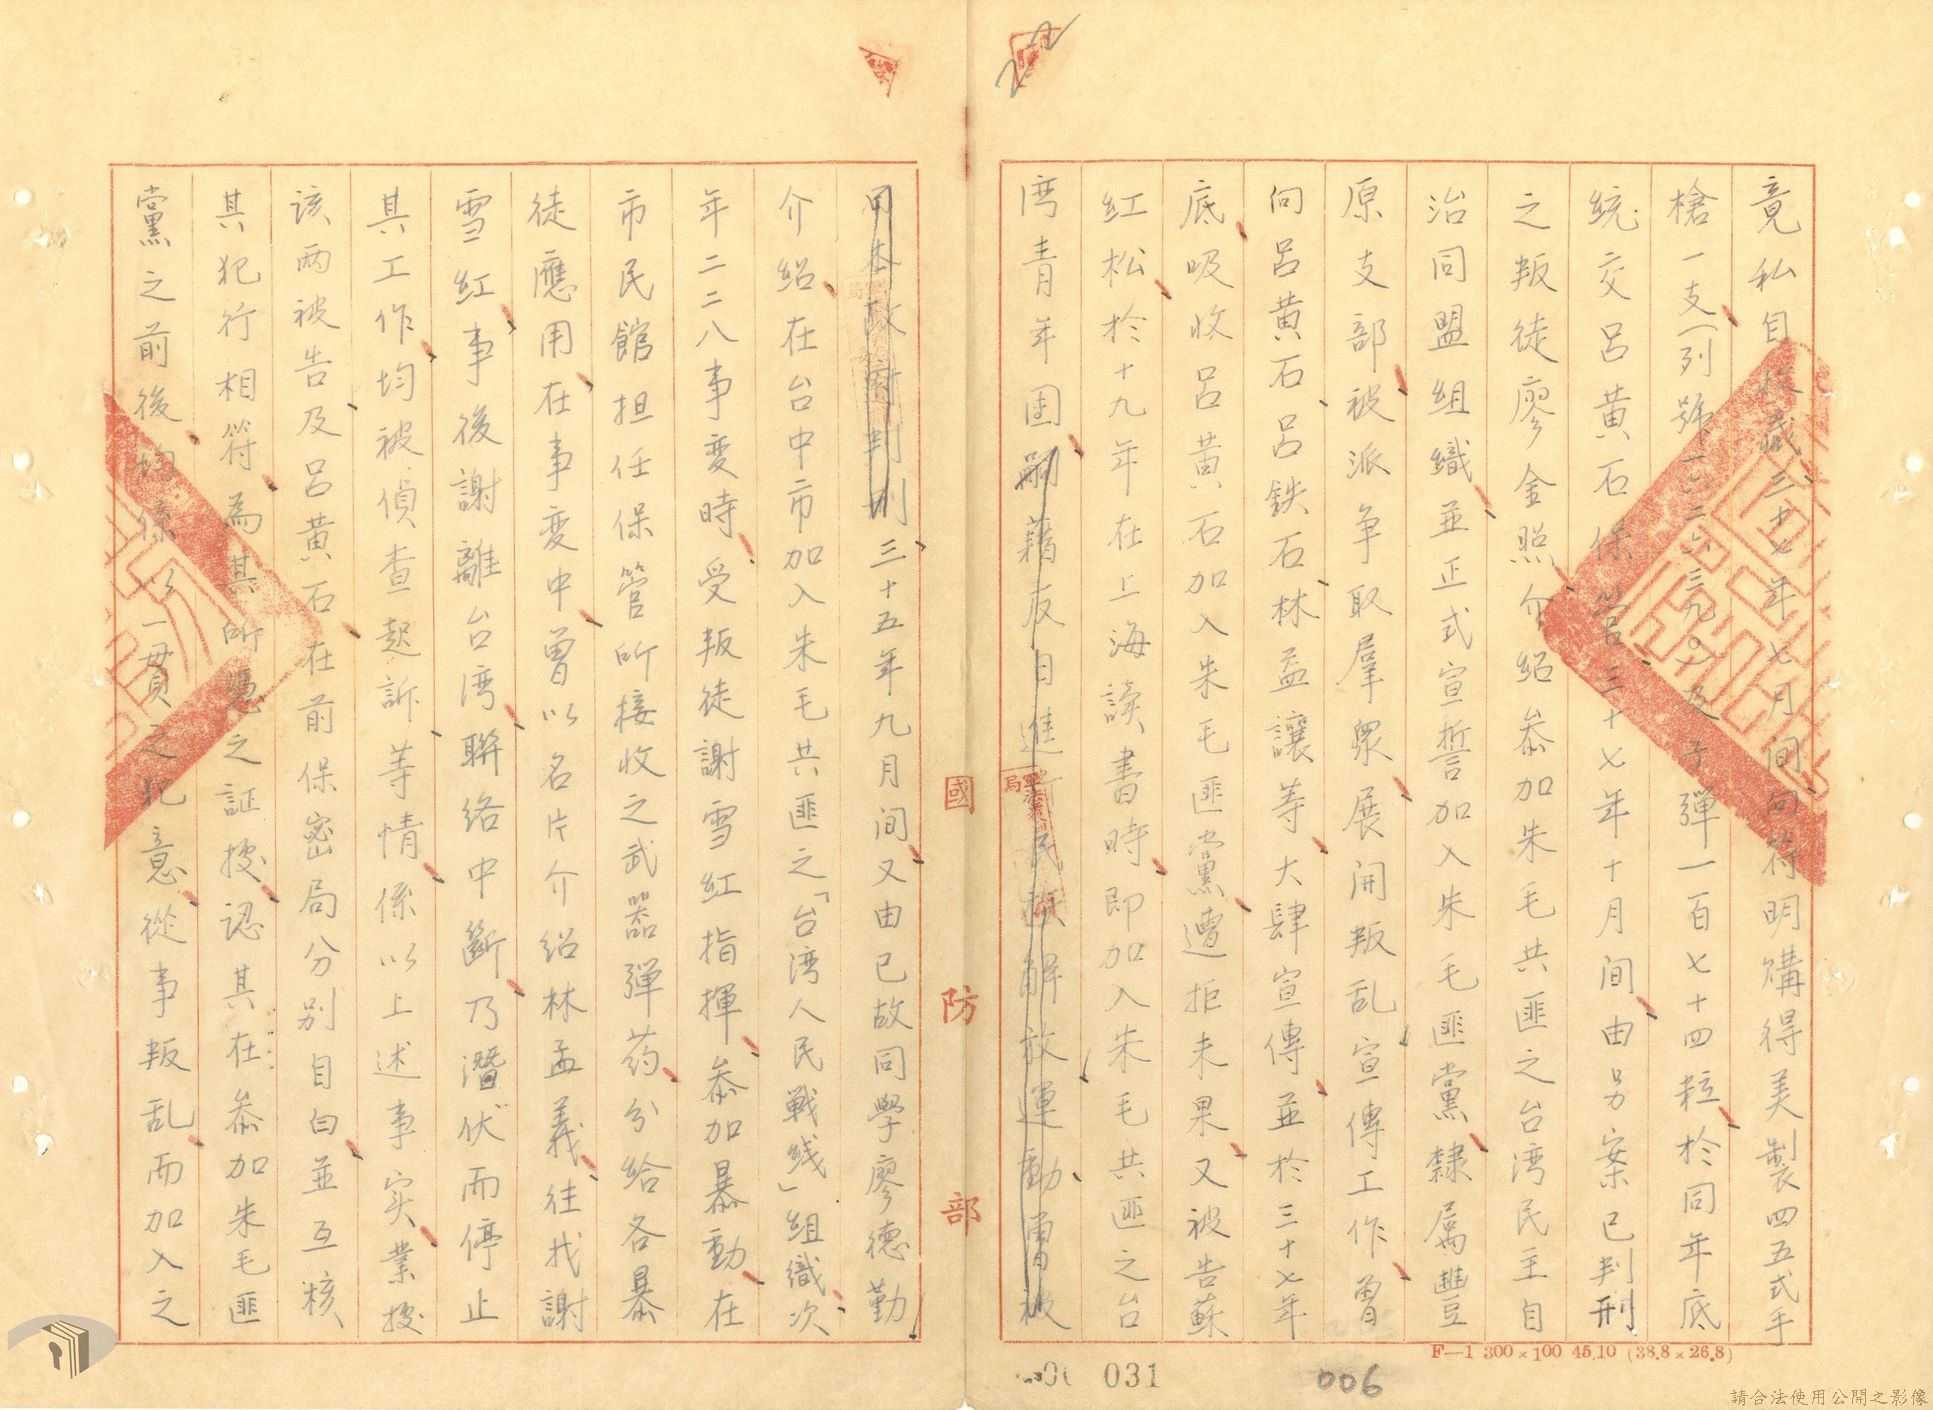 竟私自收藏三十七年七月間向符明購得美製四五式手
槍一支(列號一六二六三九〇)及子彈一百七十四粒於同年底
統交呂黃石保管三十七年十月間由另案已判刑
之叛徒廖金照介紹叅加朱毛共匪之台湾民主自
治同盟組織並正式宣誓加入朱毛匪黨隸屬豐
原支部被派争取羣眾展開叛乱宣傳工作曾
向呂黃石呂鉄石林益讓等大肆宣傳並於三十七年
底吸收呂黃石加入朱毛匪黨遭拒未果又被告蘇
紅松於十九年在上海讀書時即加入朱毛共匪之台
湾青年团嗣藉反日進行民族解放運動曾被
判刑三十五年九月间又由已故同學廖德勤
介紹在台中市加入朱毛共匪之「台湾人民戰綫」組織次
年二二八事变時受叛徒謝雪紅指揮叅加暴動在
市民館担任保管所接收之武器弹药分給各暴
徒應用在事变中曾以名片介紹林孟義往找謝
雪紅事後謝離台湾聯络中斷乃潛伏而停止
其工作均被偵查起訴等情係以上述事实業据
該两被告及呂黃石在前保密局分別自白並互核
其犯行相符為其所憑之証据認其在叅加朱毛匪
黨之前後均係以一貫之犯意從事叛乱而加入之
國防部
F—1 300×100 45.10 (38.8×26.8)
031
006
請合法使用公開之影像